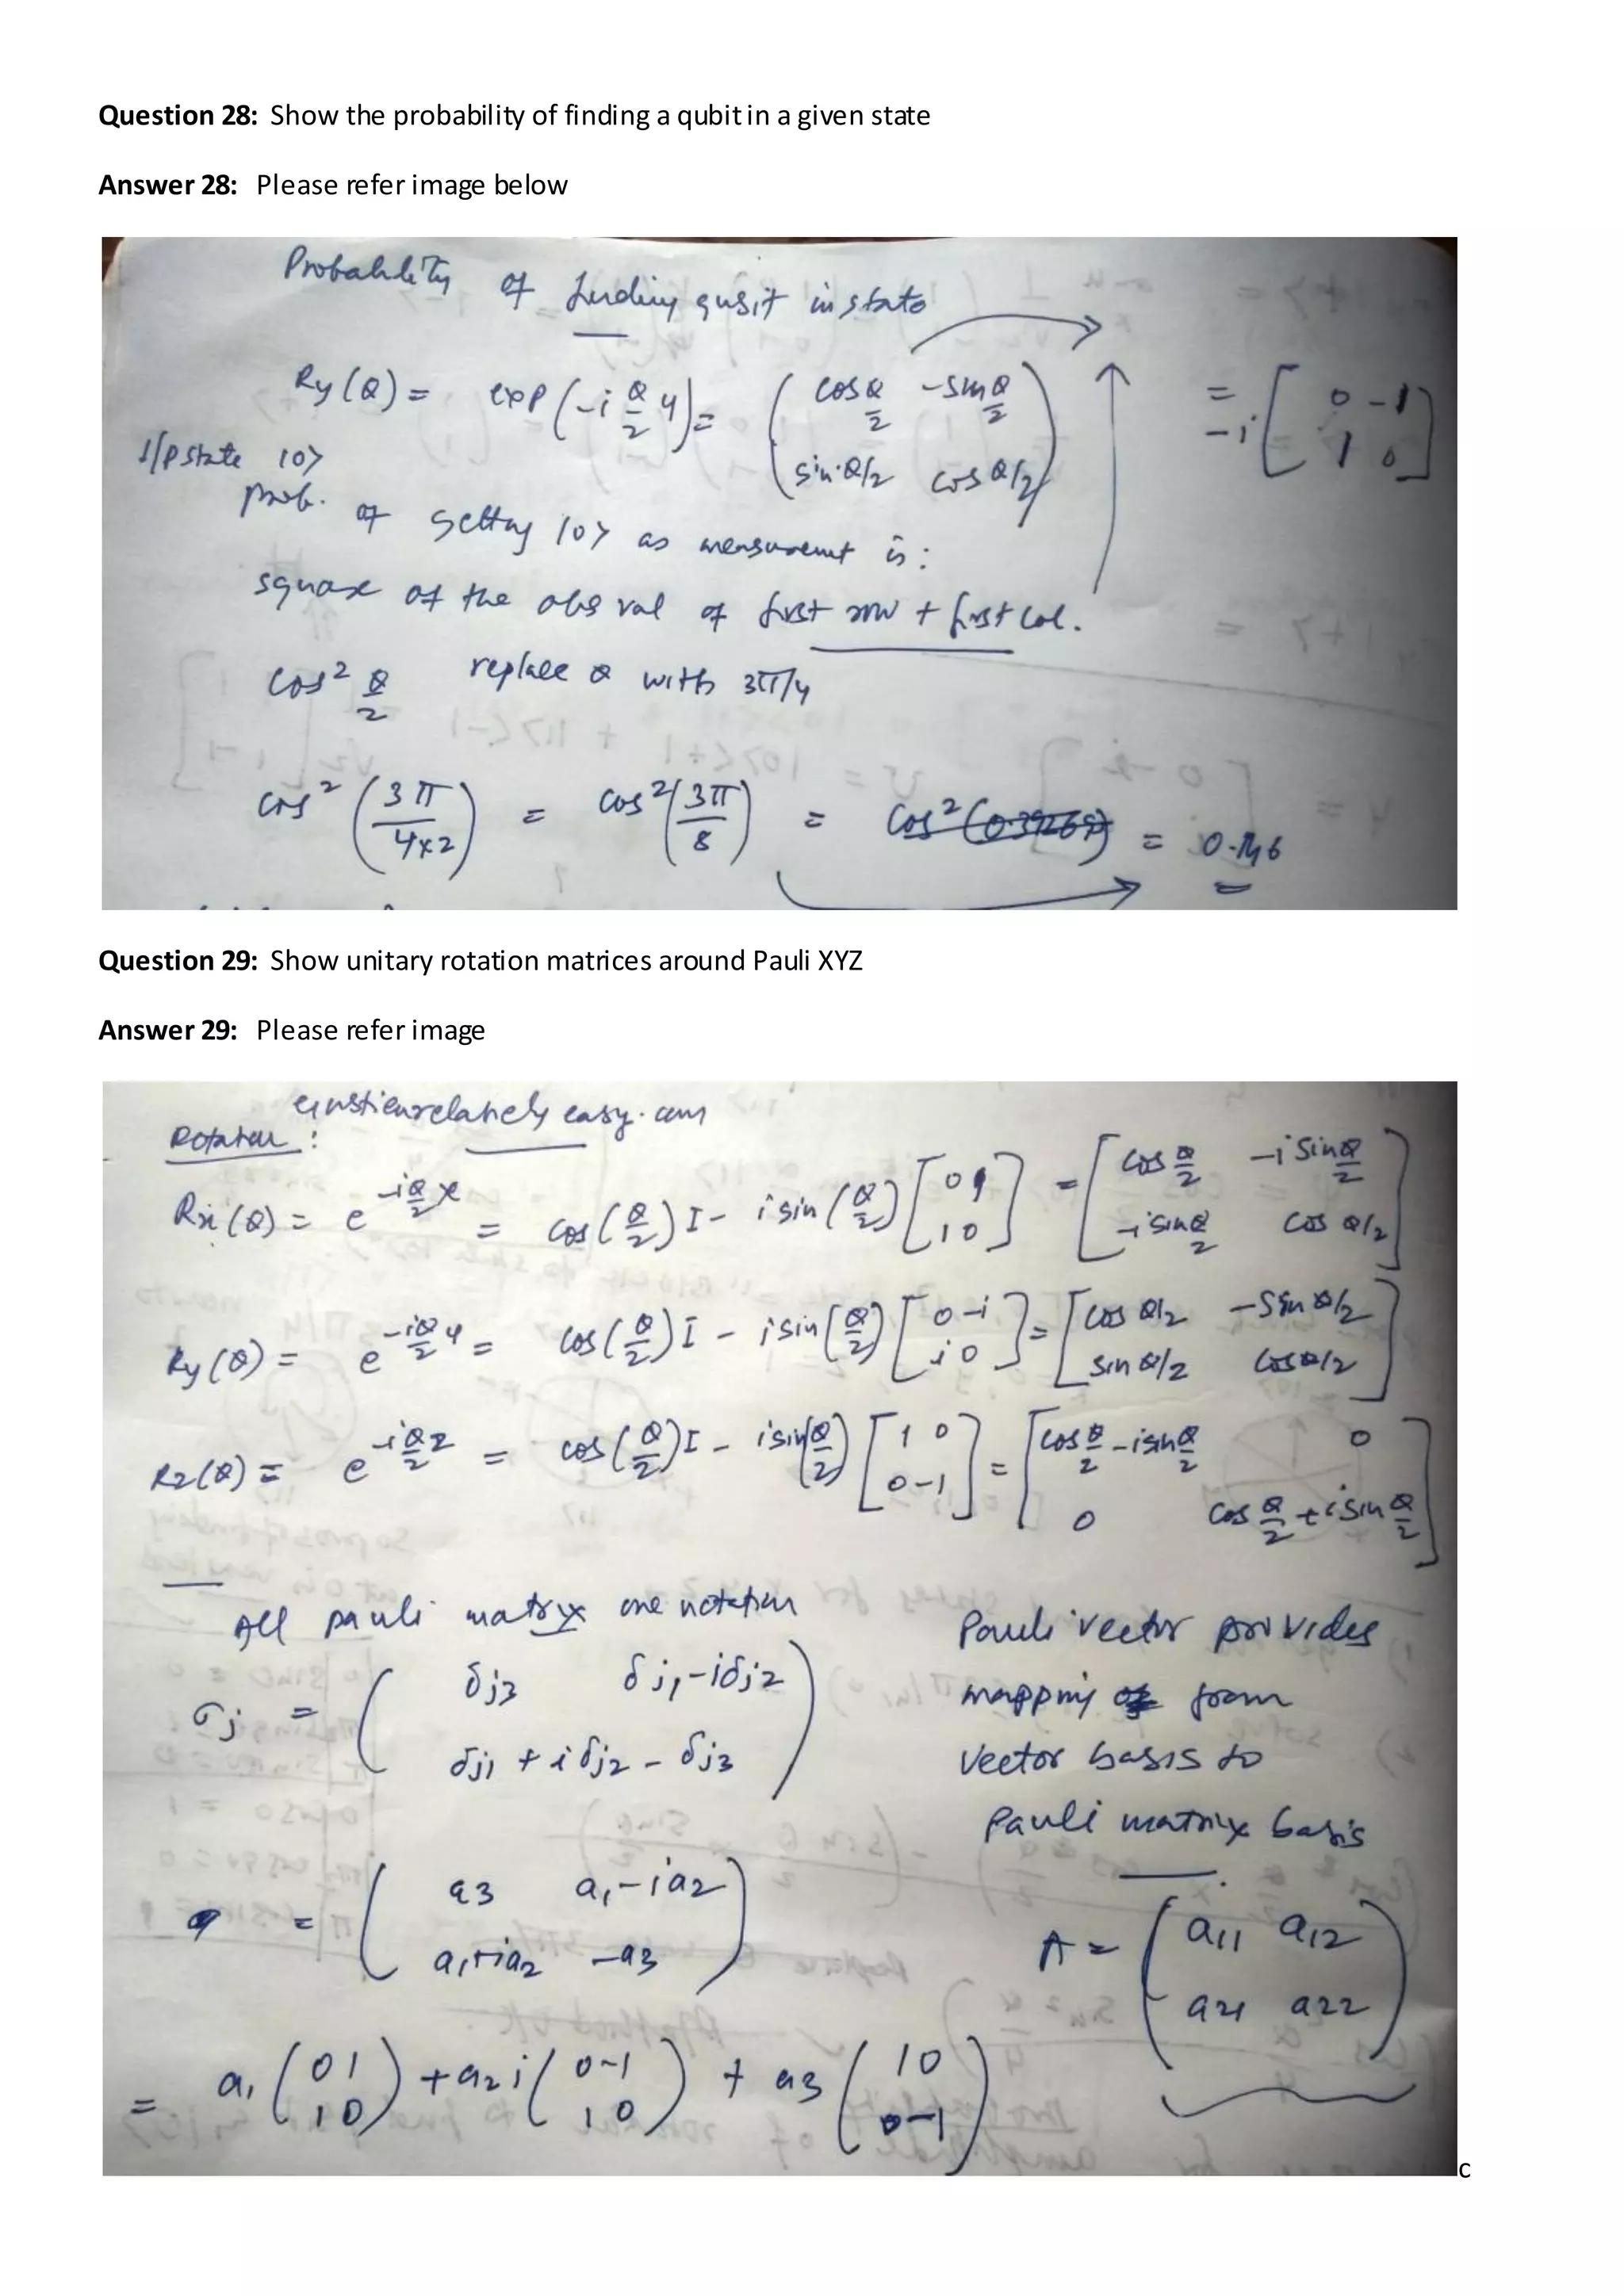 Question 28: Show the probability of finding a qubit in a given state
Answer 28: Please refer image below
Probability of finding qubit in state
Ry(θ) = exp(-i θ/2 Y) = ( cos θ/2 -sin θ/2
sin θ/2 cos θ/2 )
= -i [ 0 -1
1 0 ]
I/P state |0>
prob. of getting |0> as measurement is:
square of the abs val of first row + first col.
cos² θ/2 replace θ with 3π/4
cos² (3π/4x2) = cos² (3π/8) = = 0.146
Question 29: Show unitary rotation matrices around Pauli XYZ
Answer 29: Please refer image
einstienrelatively easy.com
Rotation :
Rx(θ) = e^(-iθ/2 X) = cos(θ/2) I - i sin(θ/2) [ 0 1 / 1 0 ] = [ cos θ/2 -i sin θ/2 / -i sin θ/2 cos θ/2 ]
Ry(θ) = e^(-iθ/2 Y) = cos(θ/2) I - i sin(θ/2) [ 0 -i / i 0 ] = [ cos θ/2 -sin θ/2 / sin θ/2 cos θ/2 ]
Rz(θ) = e^(-iθ/2 Z) = cos(θ/2) I - i sin(θ/2) [ 1 0 / 0 -1 ] = [ cos θ/2 - i sin θ/2 0 / 0 cos θ/2 + i sin θ/2 ]
All pauli matrix one notation
σj = ( δj3 δj1 - iδj2
δj1 + iδj2 - δj3 )
Pauli vector provides
mapping from
vector basis to
Pauli matrix basis
= ( a3 a1 - ia2
a1+ia2 -a3 )
A = ( a11 a12
a21 a22 )
= a1 ( 0 1 / 1 0 ) + a2 i ( 0 -1 / 1 0 ) + a3 ( 1 0 / 0 -1 )
c